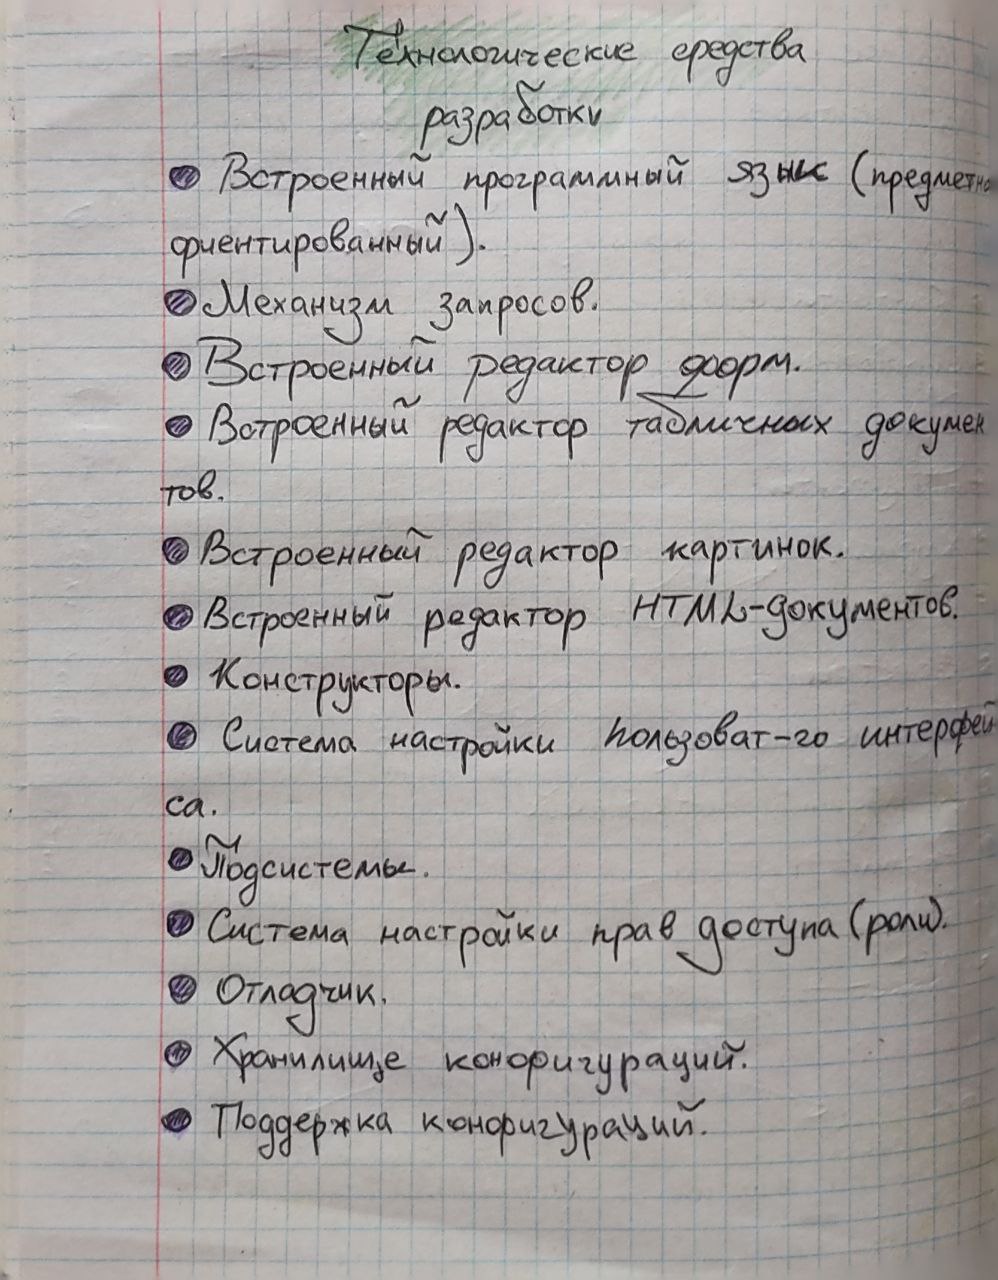 Технологические средства
разработки
Встроенный программный язык (предметно
ориентированный).
Механизм запросов.
Встроенный редактор форм.
Встроенный редактор табличных докумен
тов.
Встроенный редактор картинок.
Встроенный редактор HTML-документов.
Конструкторы.
Система настройки пользоват-го интерфей
са.
Подсистемы.
Система настройки прав доступа (роли).
Отладчик.
Хранилище конфигураций.
Поддержка конфигураций.